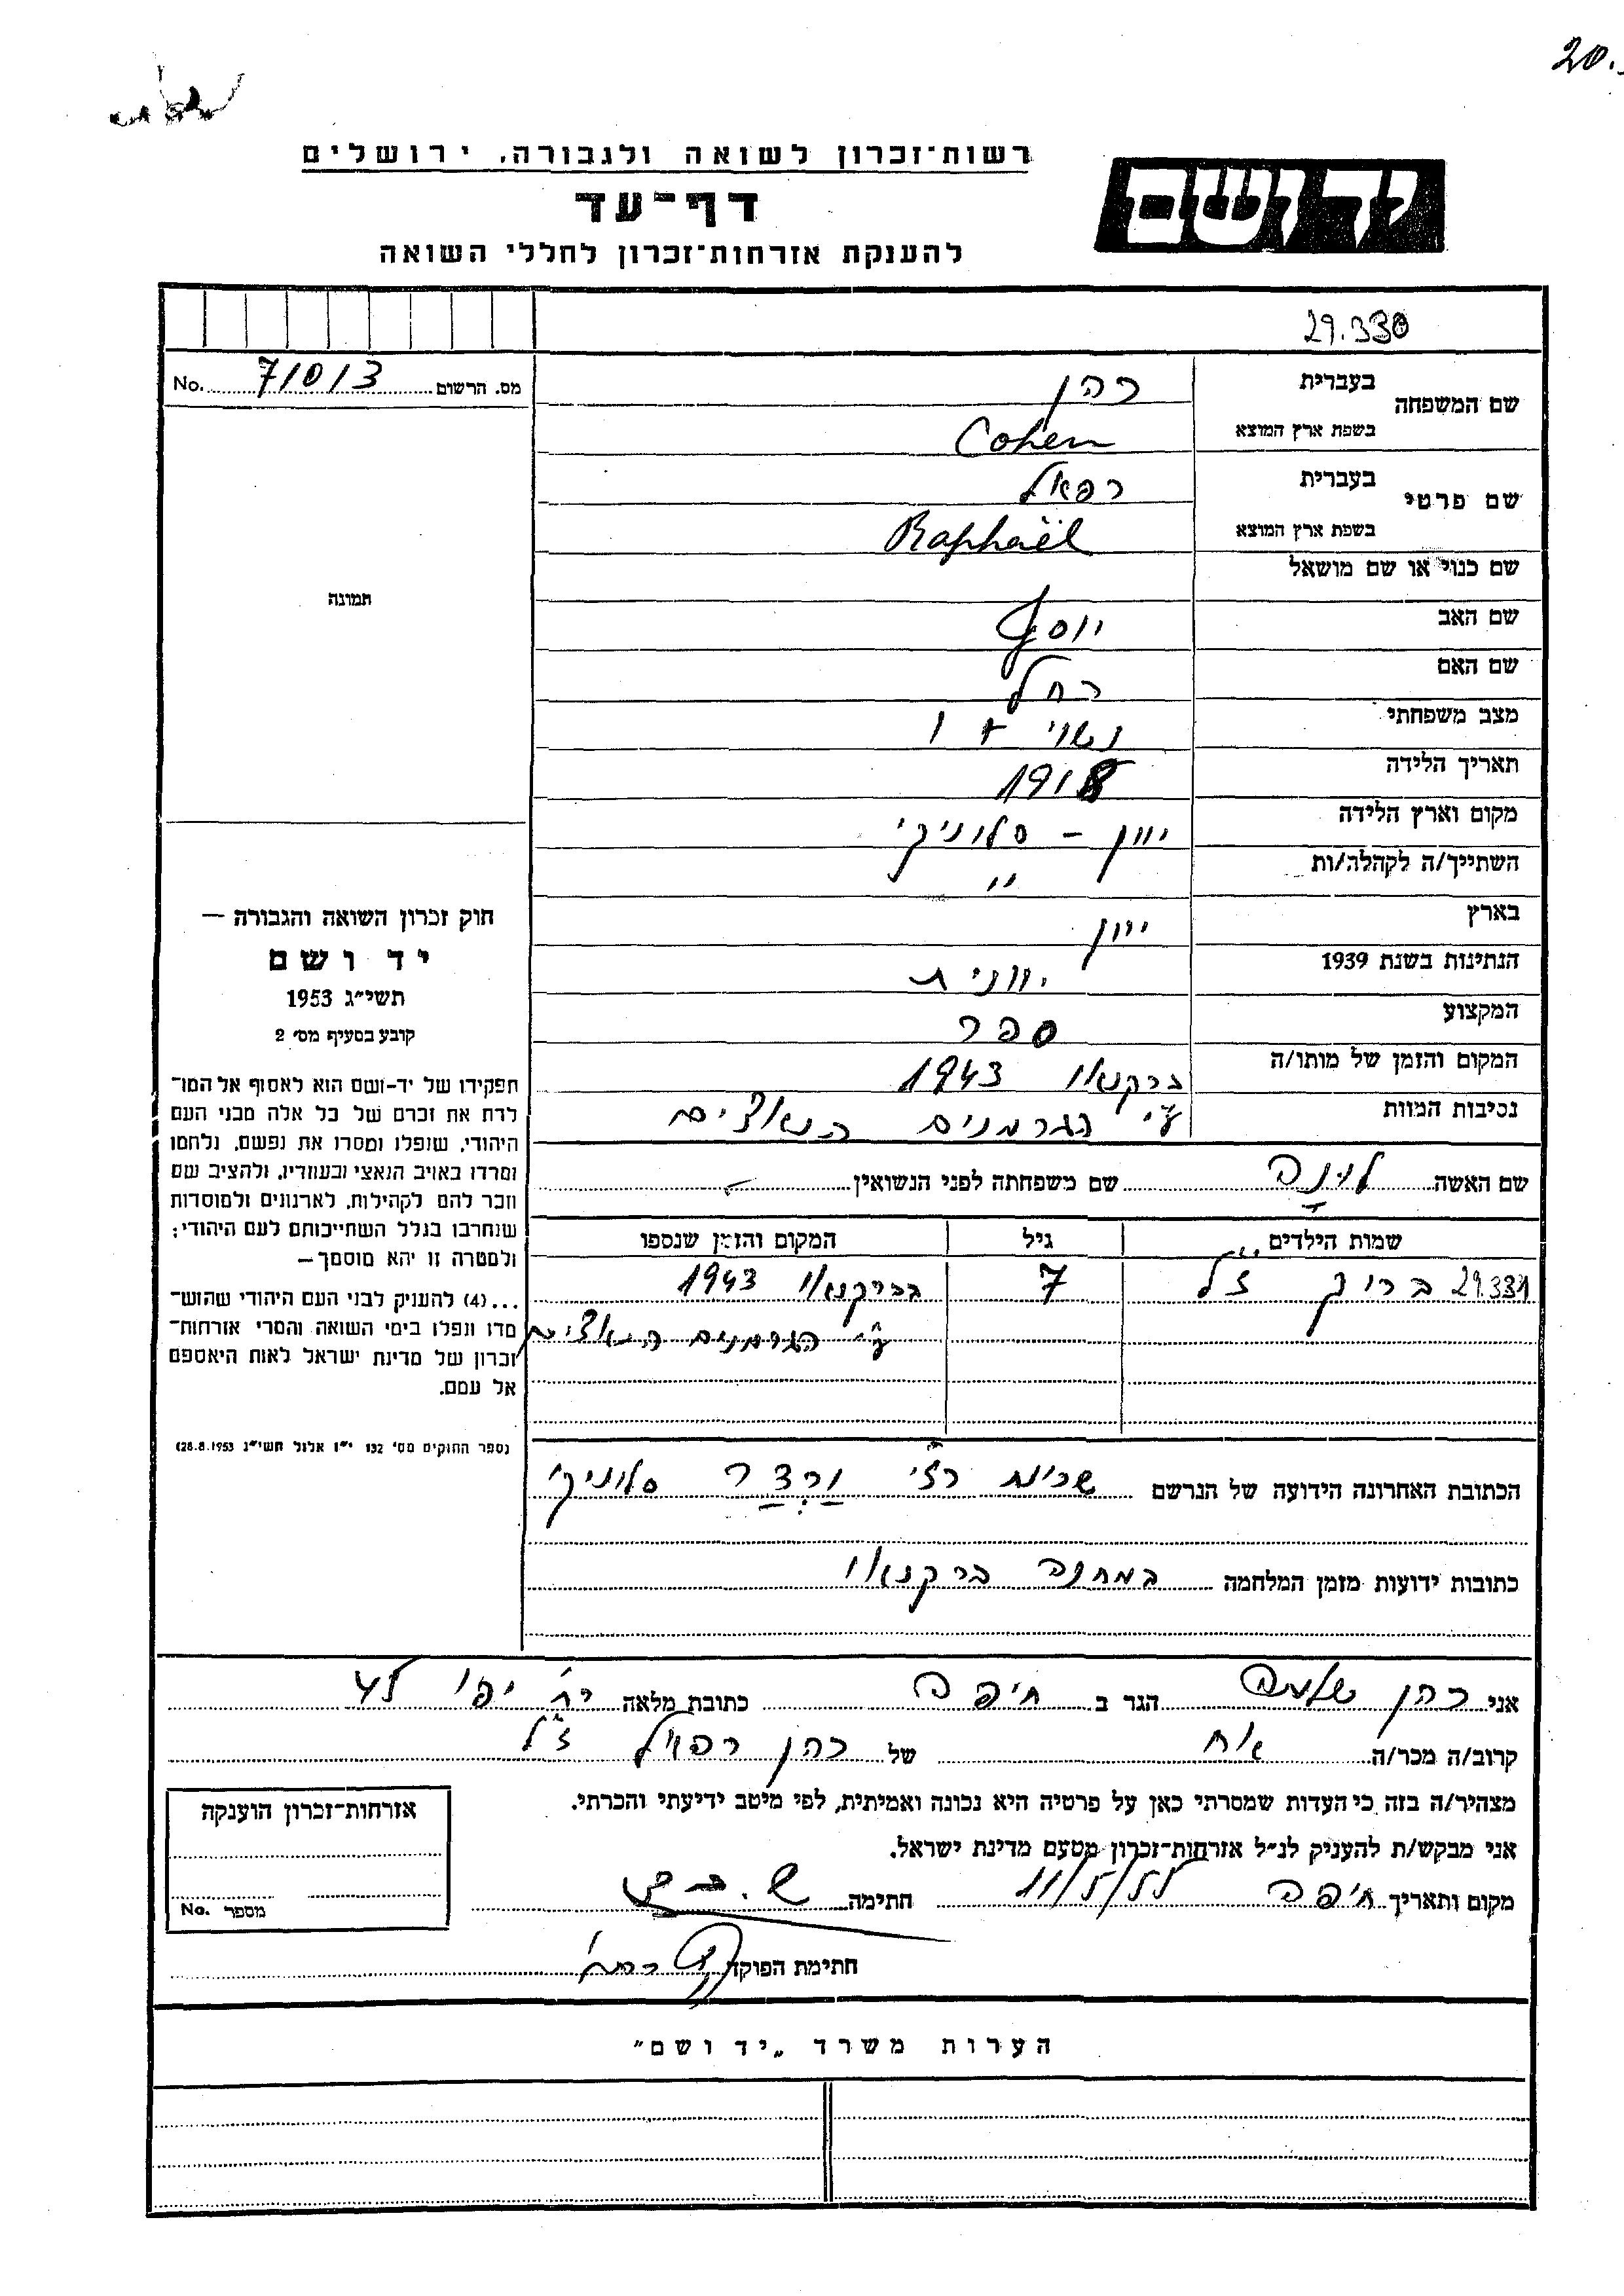 20.
רשות־זכרון לשואה ולגבורה, ירושלים
יד ושם
דף־עד
להענקת אזרחות־זכרון לחללי השואה
29.330
מס. הרשום 71013 No.
שם המשפחה בעברית כהן
בשפת ארץ המוצא Cohen
שם פרטי בעברית רפאל
בשפת ארץ המוצא Raphaël
שם כנוי או שם מושאל
שם האב יוסף
שם האם רחל
מצב משפחתי נשוי + 1
תאריך הלידה 1918
מקום וארץ הלידה יוון - סלוניקי
השתייך/ה לקהלה/ות "
בארץ יוון
הנתינות בשנת 1939 יוונית
המקצוע ספר
המקום והזמן של מותו/ה ברקנאו 1943
נסיבות המוות ע"י הגרמנים הנאצים
שם האשה לונה שם משפחתה לפני הנשואין -
שמות הילדים גיל המקום והזמן שנספו
29.331 ברוך ז"ל 7 בברקנאו 1943
ע"י הגרמנים הנאצים
הכתובת האחרונה הידועה של הנרשם שכונת רז'י ורדר סלוניקי
כתובות ידועות מזמן המלחמה במחנה ברקנאו
תמונה
חוק זכרון השואה והגבורה —
יד ושם
תשי"ג 1953
קובע בסעיף מס' 2
תפקידו של יד-ושם הוא לאסוף אל המו־
לדת את זכרם של כל אלה מבני העם
היהודי, שנפלו ומסרו את נפשם, נלחמו
ומרדו באויב הנאצי ובעוזריו, ולהציב שם
וזכר להם לקהילות, לארגונים ולמוסדות
שנחרבו בגלל השתייכותם לעם היהודי;
ולמטרה זו יהא מוסמך—
...(4) להעניק לבני העם היהודי שהוש־
מדו ונפלו בימי השואה והמרי אזרחות־
זכרון של מדינת ישראל לאות היאספם
אל עמם.
(ספר החוקים מס' 132 י"ז אלול תשי"ג 28.8.1953)
אני כהן שלמה הגר ב חיפה כתובת מלאה רח' יפו
קרוב/ה מכר/ה אח של כהן רפאל ז"ל
מצהיר/ה בזה כי העדות שמסרתי כאן על פרטיה היא נכונה ואמיתית, לפי מיטב ידיעתי והכרתי.
אני מבקש/ת להעניק לנ"ל אזרחות־זכרון מטעם מדינת ישראל.
מקום ותאריך חיפה 11/5/55 חתימה
חתימת הפוקד
אזרחות־זכרון הוענקה
מספר No.
הערות משרד „יד ושם"